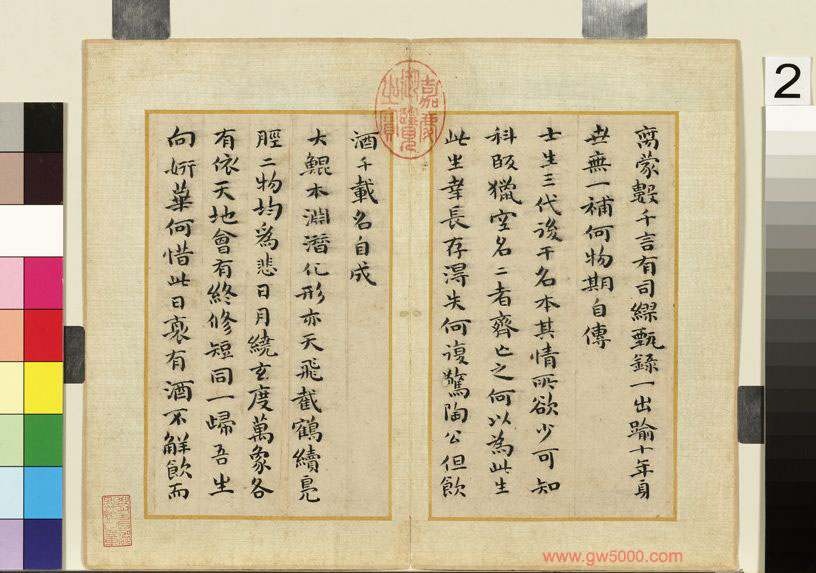 禼蒙嗀千言有司繆甄錄一出踰十年身
世無一補何物期自傳
士生三代後干名本其情所欲少可知
科叚獵空名二者齊亡之何以為此生
此生幸長存得失何復驚陶公但飲
酒千載名自成
大鯤本淵潛化形亦天飛截鶴續鳧
脛二物均為悲日月繞玄度萬象各
有依天地會有終修短同一歸吾生
向妍華何惜此日衰有酒不解飲而
嘉慶御覽之寶
2
www.gw5000.com